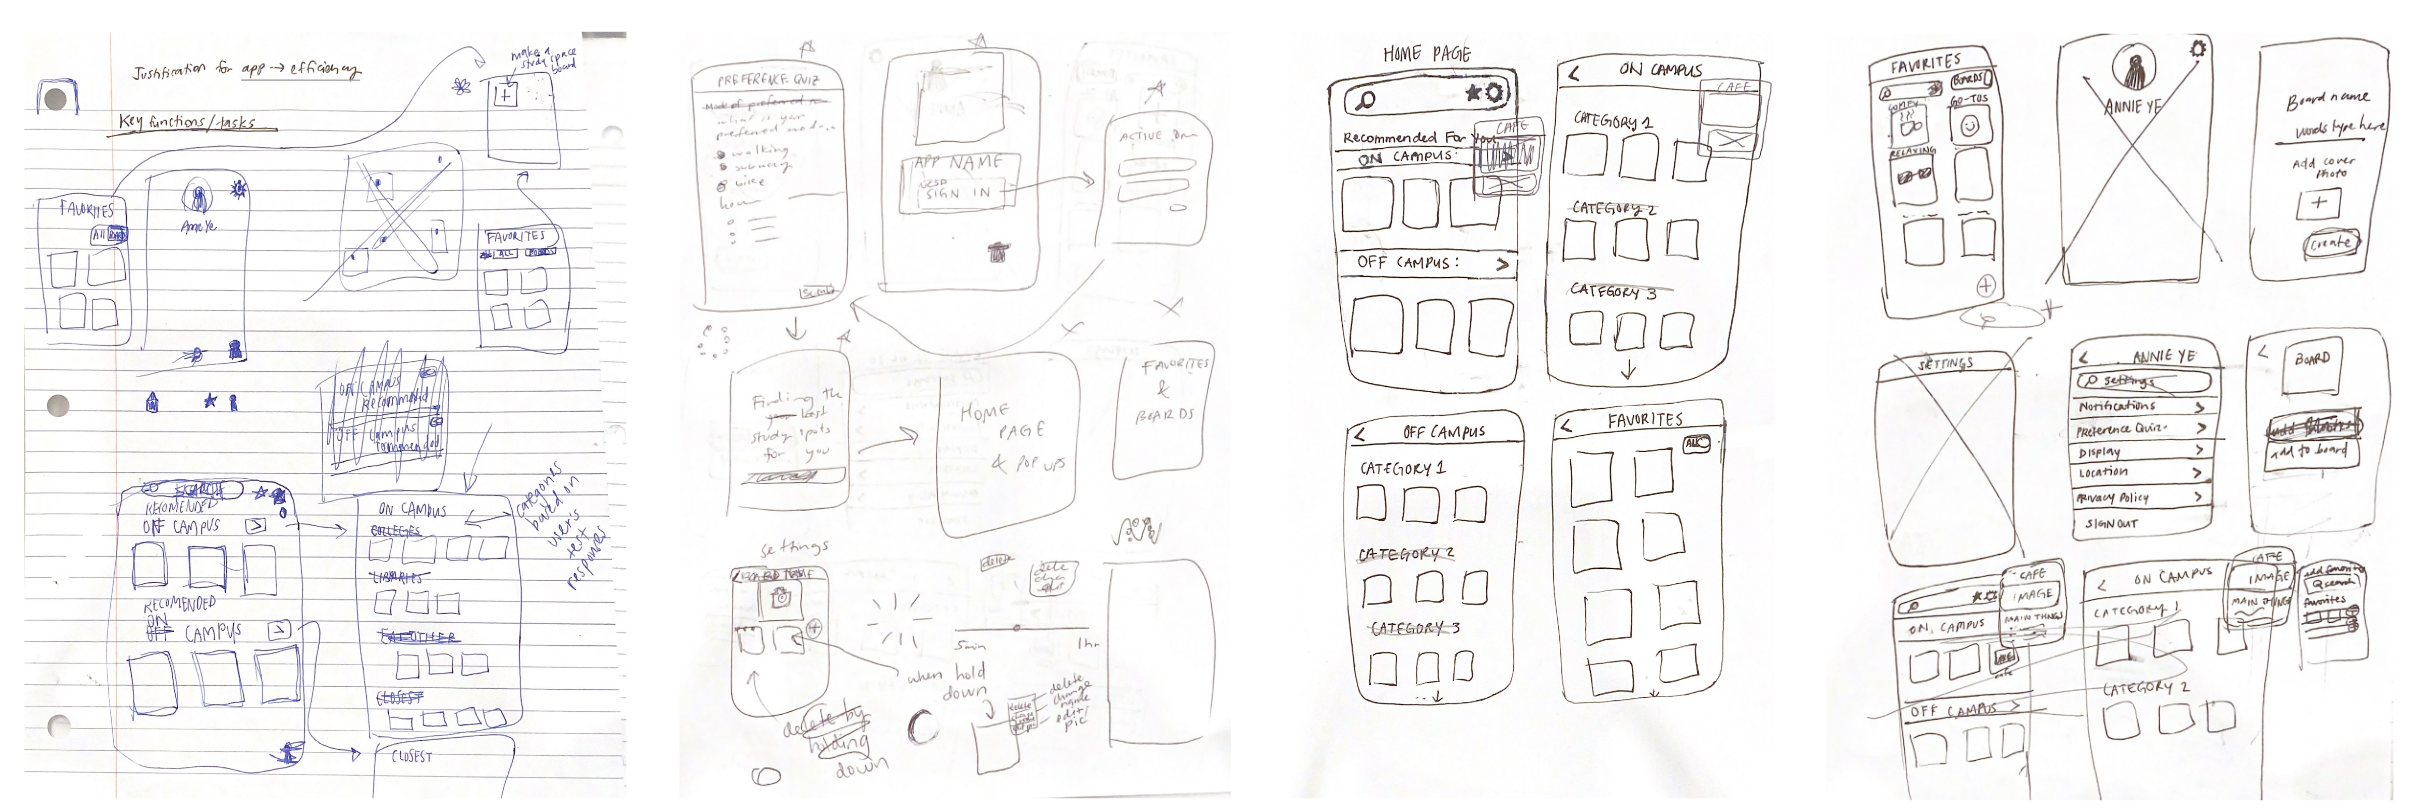 Justification for app → efficiency
Key functions/tasks
make a
study space
board
+
FAVORITES
All
Annie Ye
FAVORITES
ALL
OFF CAMPUS
Recommended
OFF campus
SEARCH
RECOMENDED
OFF CAMPUS >
RECOMENDED
ON
OFF CAMPUS >
ON CAMPUS
COLLEGES
LIBRARIES
OTHER
CLOSEST
CLOSEST
categories
based on
user's
test
responses
PREFERENCE QUIZ
what is your
preferred
walking
subway
bike
APP NAME
SIGN IN
ACTIVE
Finding the
best
study spots
for you
HOME
PAGE
& POP UPS
FAVORITES
&
BOARDS
settings
BOARD NAME
+
delete
5min
1hr
when hold
down
delete by
holding
down
delete
change
name
edit
pic
HOME PAGE
Recommended For You
ON CAMPUS:
CAFE
OFF CAMPUS: >
< ON CAMPUS
CAFE
CATEGORY 1
CATEGORY 2
CATEGORY 3
< OFF CAMPUS
CATEGORY 1
CATEGORY 2
CATEGORY 3
< FAVORITES
ALL
FAVORITES
BOARDS
COMFY
GO-TOS
RELAXING
+
ANNIE YE
Board name
words type here
Add cover
Photo
+
Create
SETTINGS
< ANNIE YE
settings
Notifications >
Preference Quiz >
Display >
Location >
Privacy Policy >
SIGN OUT
< BOARD
add to board
CAFE
IMAGE
MAIN THINGS
ON CAMPUS
OFF CAMPUS >
< ON CAMPUS
CATEGORY 1
CATEGORY 2
CAFE
IMAGE
MAIN THINGS
add favorites
search
favorites